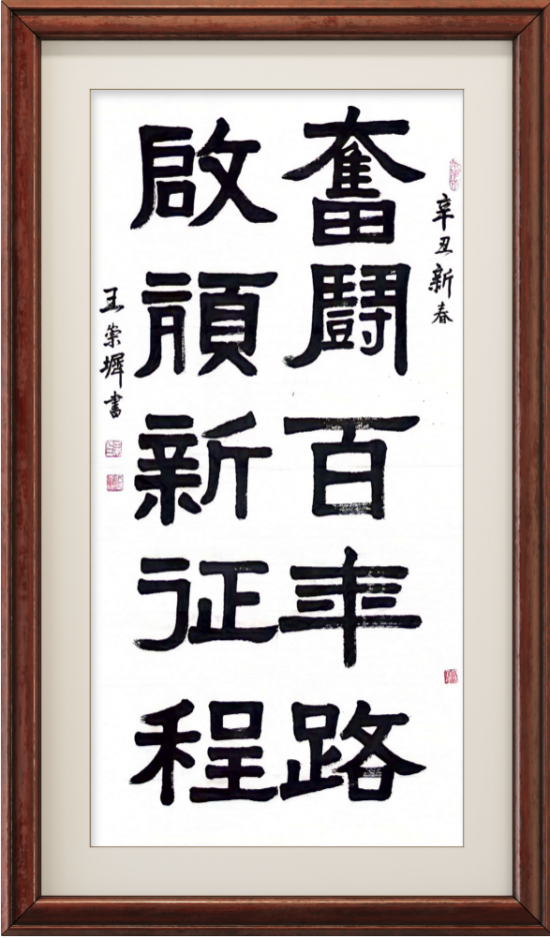 辛丑新春
奮闘百年路
啟新征程
王崇墀書